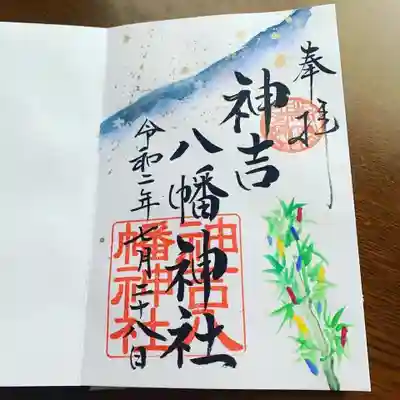 奉拝
神吉八幡神社
令和二年七月二十八日
神吉八
幡神社